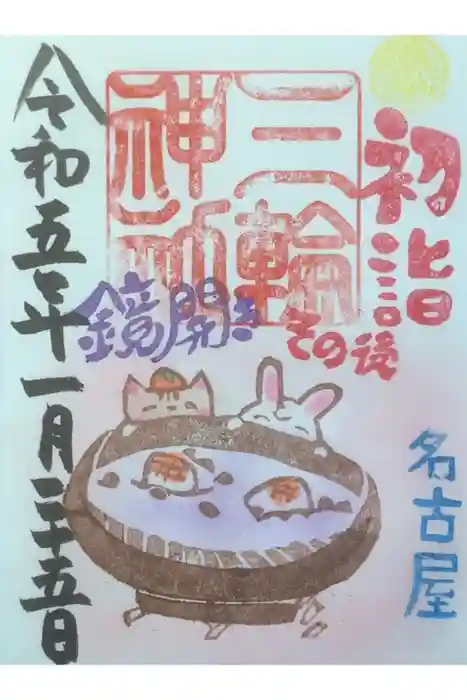 初詣
三輪
神社
その後
鏡開き
名古屋
令和五年一月二十五日